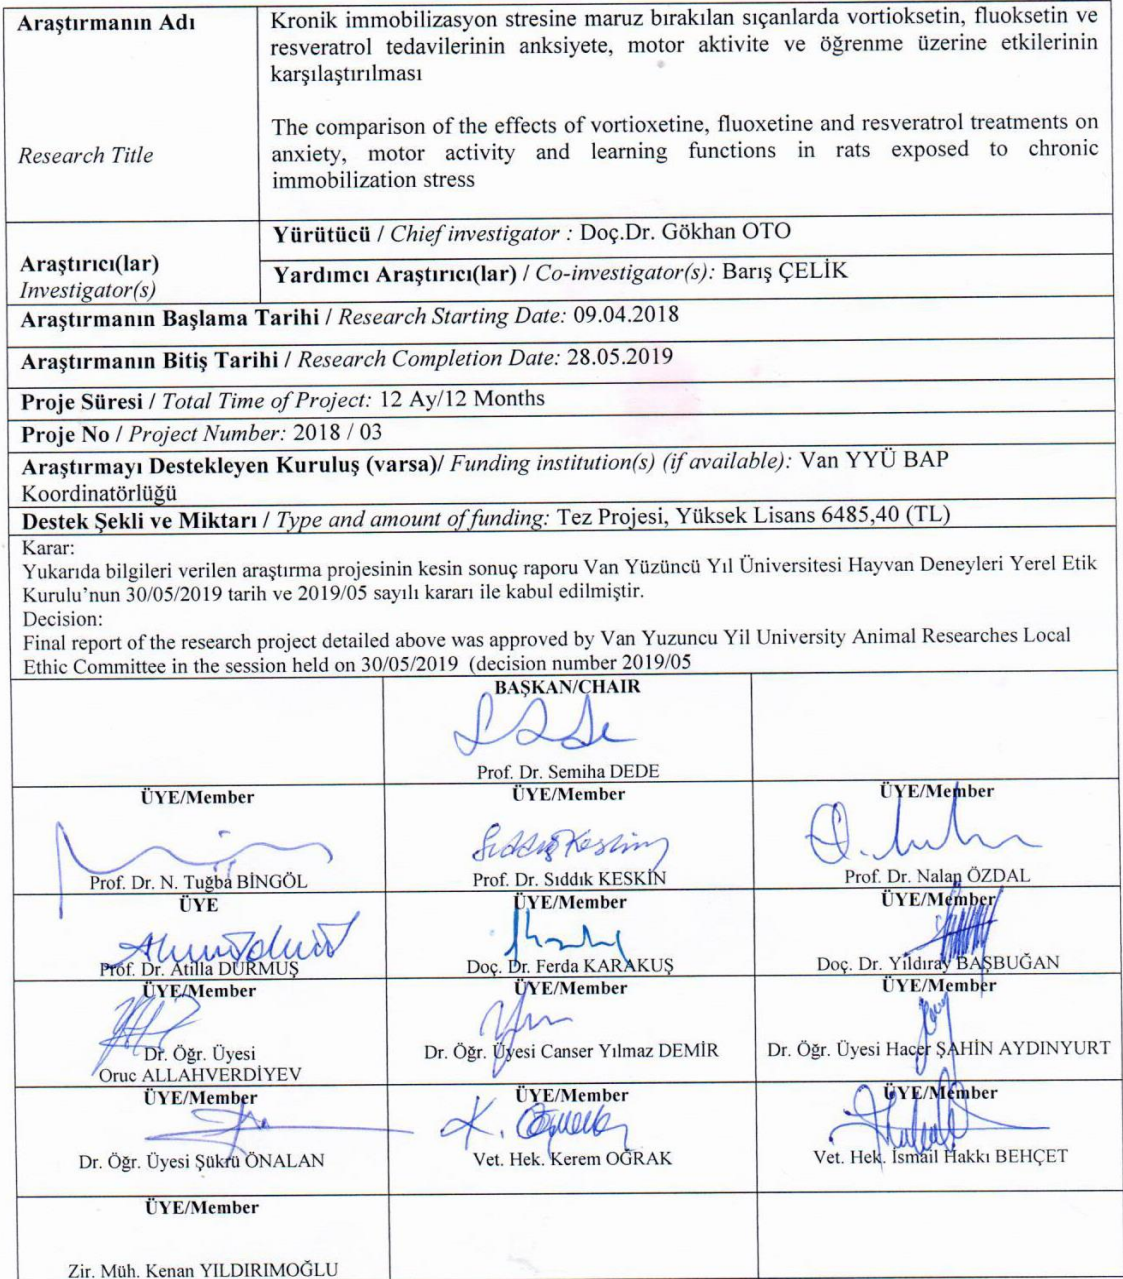 Araştırmanın Adı
Kronik immobilizasyon stresine maruz bırakılan sıçanlarda vortioksetin, fluoksetin ve
resveratrol tedavilerinin anksiyete, motor aktivite ve öğrenme üzerine etkilerinin
karşılaştırılması
Research Title
The comparison of the effects of vortioxetine, fluoxetine and resveratrol treatments on
anxiety, motor activity and learning functions in rats exposed to chronic
immobilization stress
Araştırıcı(lar)
Investigator(s)
Yürütücü / Chief investigator : Doç.Dr. Gökhan OTO
Yardımcı Araştırıcı(lar) / Co-investigator(s): Barış ÇELİK
Araştırmanın Başlama Tarihi / Research Starting Date: 09.04.2018
Araştırmanın Bitiş Tarihi / Research Completion Date: 28.05.2019
Proje Süresi / Total Time of Project: 12 Ay/12 Months
Proje No / Project Number: 2018 / 03
Araştırmayı Destekleyen Kuruluş (varsa)/ Funding institution(s) (if available): Van YYÜ BAP
Koordinatörlüğü
Destek Şekli ve Miktarı / Type and amount of funding: Tez Projesi, Yüksek Lisans 6485,40 (TL)
Karar:
Yukarıda bilgileri verilen araştırma projesinin kesin sonuç raporu Van Yüzüncü Yıl Üniversitesi Hayvan Deneyleri Yerel Etik
Kurulu'nun 30/05/2019 tarih ve 2019/05 sayılı kararı ile kabul edilmiştir.
Decision:
Final report of the research project detailed above was approved by Van Yuzuncu Yil University Animal Researches Local
Ethic Committee in the session held on 30/05/2019 (decision number 2019/05
BAŞKAN/CHAIR
Prof. Dr. Semiha DEDE
ÜYE/Member
Prof. Dr. N. Tuğba BİNGÖL
ÜYE/Member
Sıddık Keskin
Prof. Dr. Sıddık KESKİN
ÜYE/Member
Prof. Dr. Nalan ÖZDAL
ÜYE
Prof. Dr. Atilla DURMUŞ
ÜYE/Member
Doç. Dr. Ferda KARAKUŞ
ÜYE/Member
Doç. Dr. Yıldıray BAŞBUĞAN
ÜYE/Member
Dr. Öğr. Üyesi
Oruc ALLAHVERDİYEV
ÜYE/Member
Dr. Öğr. Üyesi Canser Yılmaz DEMİR
ÜYE/Member
Dr. Öğr. Üyesi Hacer ŞAHİN AYDINYURT
ÜYE/Member
Dr. Öğr. Üyesi Şükrü ÖNALAN
ÜYE/Member
Vet. Hek. Kerem OĞRAK
ÜYE/Member
Vet. Hek. İsmail Hakkı BEHÇET
ÜYE/Member
Zir. Müh. Kenan YILDIRIMOĞLU